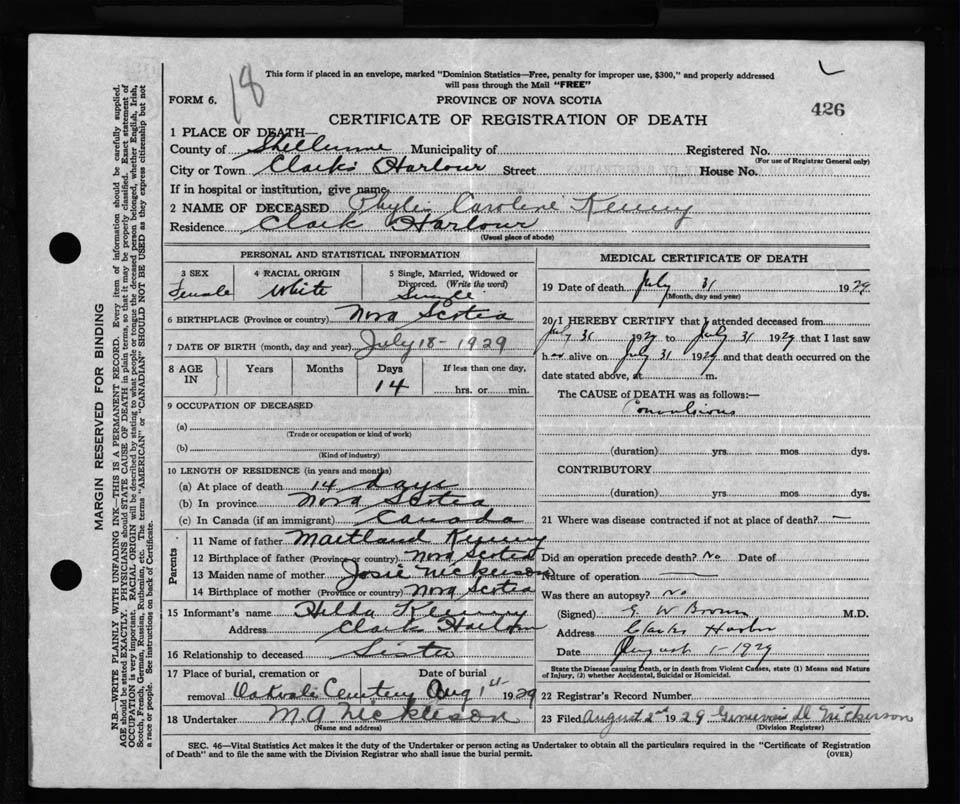 18
This form if placed in an envelope, marked "Dominion Statistics—Free, penalty for improper use, $300," and properly addressed
will pass through the Mail "FREE"
FORM 6.
PROVINCE OF NOVA SCOTIA
426
CERTIFICATE OF REGISTRATION OF DEATH
1 PLACE OF DEATH—
County of Shelburne Municipality of Registered No.
(For use of Registrar General only)
City or Town Clark's Harbour Street House No.
If in hospital or institution, give name
2 NAME OF DECEASED Phylis Caroline Kenny
Residence Clark Harbour
(Usual place of abode)
PERSONAL AND STATISTICAL INFORMATION
3 SEX Female
4 RACIAL ORIGIN White
5 Single, Married, Widowed or Divorced. (Write the word) Single
6 BIRTHPLACE (Province or country) Nova Scotia
7 DATE OF BIRTH (month, day and year) July 18 - 1929
8 AGE IN Years Months Days 14 If less than one day, hrs. or min.
9 OCCUPATION OF DECEASED
(a)
(Trade or occupation or kind of work)
(b)
(Kind of industry)
10 LENGTH OF RESIDENCE (in years and months)
(a) At place of death 14 days
(b) In province Nova Scotia
(c) In Canada (if an immigrant) Canada
Parents
11 Name of father Maitland Kenny
12 Birthplace of father (Province or country) Nova Scotia
13 Maiden name of mother Josie Nickerson
14 Birthplace of mother (Province or country) Nova Scotia
15 Informant's name Hilda Kenny
Address Clark's Harbour
16 Relationship to deceased Sister
17 Place of burial, cremation or Date of burial
removal Cemetery Aug 1st 1929
18 Undertaker M. A. Nickerson
(Name and address)
MEDICAL CERTIFICATE OF DEATH
19 Date of death July 31 1929
(Month, day and year)
20 I HEREBY CERTIFY that I attended deceased from
July 31 1929 to July 31 1929 that I last saw
her alive on July 31 1929 and that death occurred on the
date stated above, at m.
The CAUSE of DEATH was as follows:—
Convulsions
(duration) yrs. mos dys.
CONTRIBUTORY
(duration) yrs. mos. dys.
21 Where was disease contracted if not at place of death? —
Did an operation precede death? No Date of
Nature of operation —
Was there an autopsy? No
(Signed) E. W Brown M.D.
Address Clarks Harbor
Date August 1 - 1929
State the Disease causing Death, or in death from Violent Causes, state (1) Means and Nature
of Injury, (2) whether Accidental, Suicidal or Homicidal.
22 Registrar's Record Number
23 Filed August 2nd 1929 D. Nickerson
(Division Registrar)
SEC. 46—Vital Statistics Act makes it the duty of the Undertaker or person acting as Undertaker to obtain all the particulars required in the "Certificate of Registration
of Death" and to file the same with the Division Registrar who shall issue the burial permit.
(OVER)
MARGIN RESERVED FOR BINDING
N.B.—WRITE PLAINLY WITH UNFADING INK—THIS IS A PERMANENT RECORD. Every item of information should be carefully supplied.
AGE should be stated EXACTLY. PHYSICIANS should STATE CAUSE OF DEATH in plain terms, so that it may be properly classified. Exact statement of
OCCUPATION is very important. RACIAL ORIGIN will be described by stating to what people or tongue the deceased person belonged, whether English, Irish,
Scotch, French, German, Russian, Ruthenian, etc. The terms "AMERICAN" or "CANADIAN" SHOULD NOT BE USED as they express citizenship but not
a race or people. See instructions on back of Certificate.